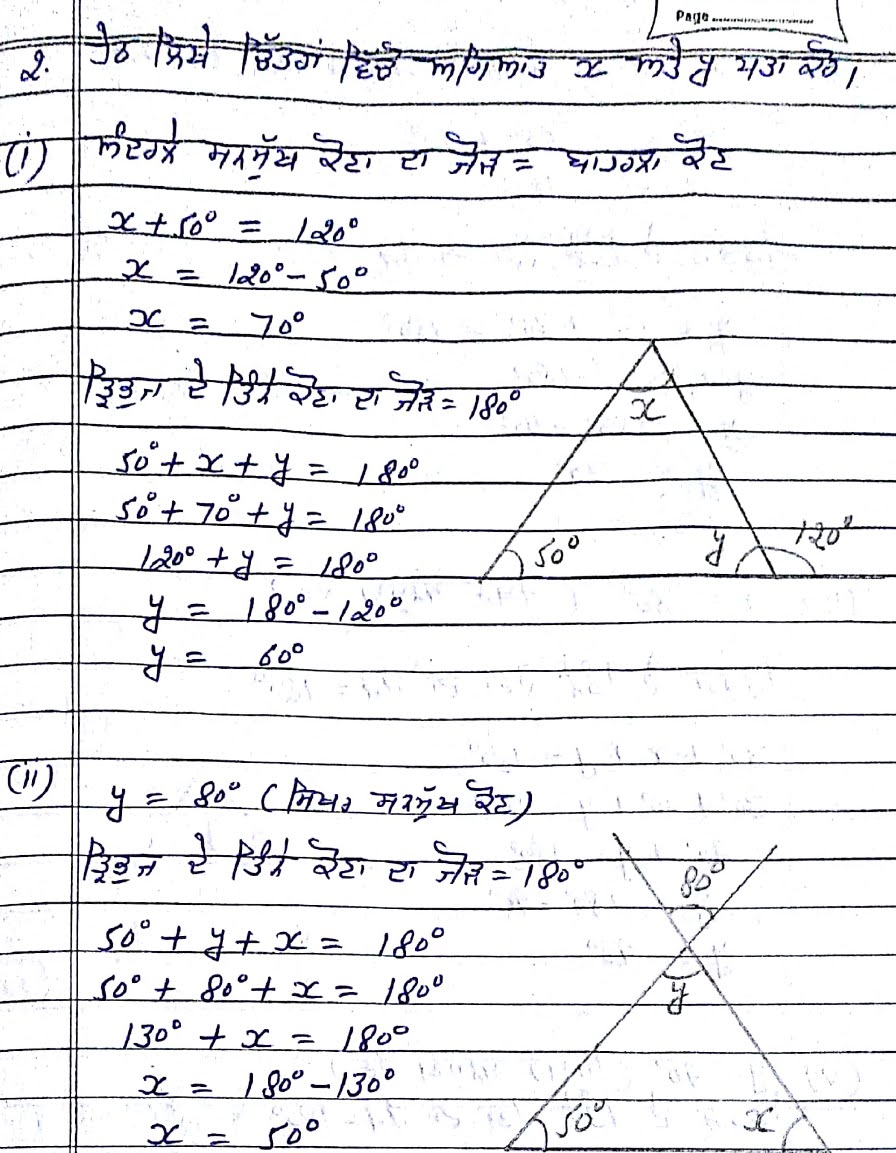 Page
2. ਹੇਠ ਲਿਖੇ ਚਿੱਤਰਾਂ ਵਿੱਚੋਂ ਅਗਿਆਤ x ਅਤੇ y ਪਤਾ ਕਰੋ।
(i) ਅੰਦਰਲੇ ਸਨਮੁੱਖ ਕੋਣਾਂ ਦਾ ਜੋੜ = ਬਾਹਰਲਾ ਕੋਣ
x + 50° = 120°
x = 120° - 50°
x = 70°
ਤ੍ਰਿਭੁਜ ਦੇ ਤਿੰਨੇ ਕੋਣਾਂ ਦਾ ਜੋੜ = 180°
x
50° + x + y = 180°
50° + 70° + y = 180°
120° + y = 180°
50° y 120°
y = 180° - 120°
y = 60°
(ii) y = 80° (ਸਿਖਰ ਸਨਮੁੱਖ ਕੋਣ)
ਤ੍ਰਿਭੁਜ ਦੇ ਤਿੰਨੇ ਕੋਣਾਂ ਦਾ ਜੋੜ = 180°
80°
50° + y + x = 180°
50° + 80° + x = 180°
y
130° + x = 180°
x = 180° - 130°
x = 50°
50° x